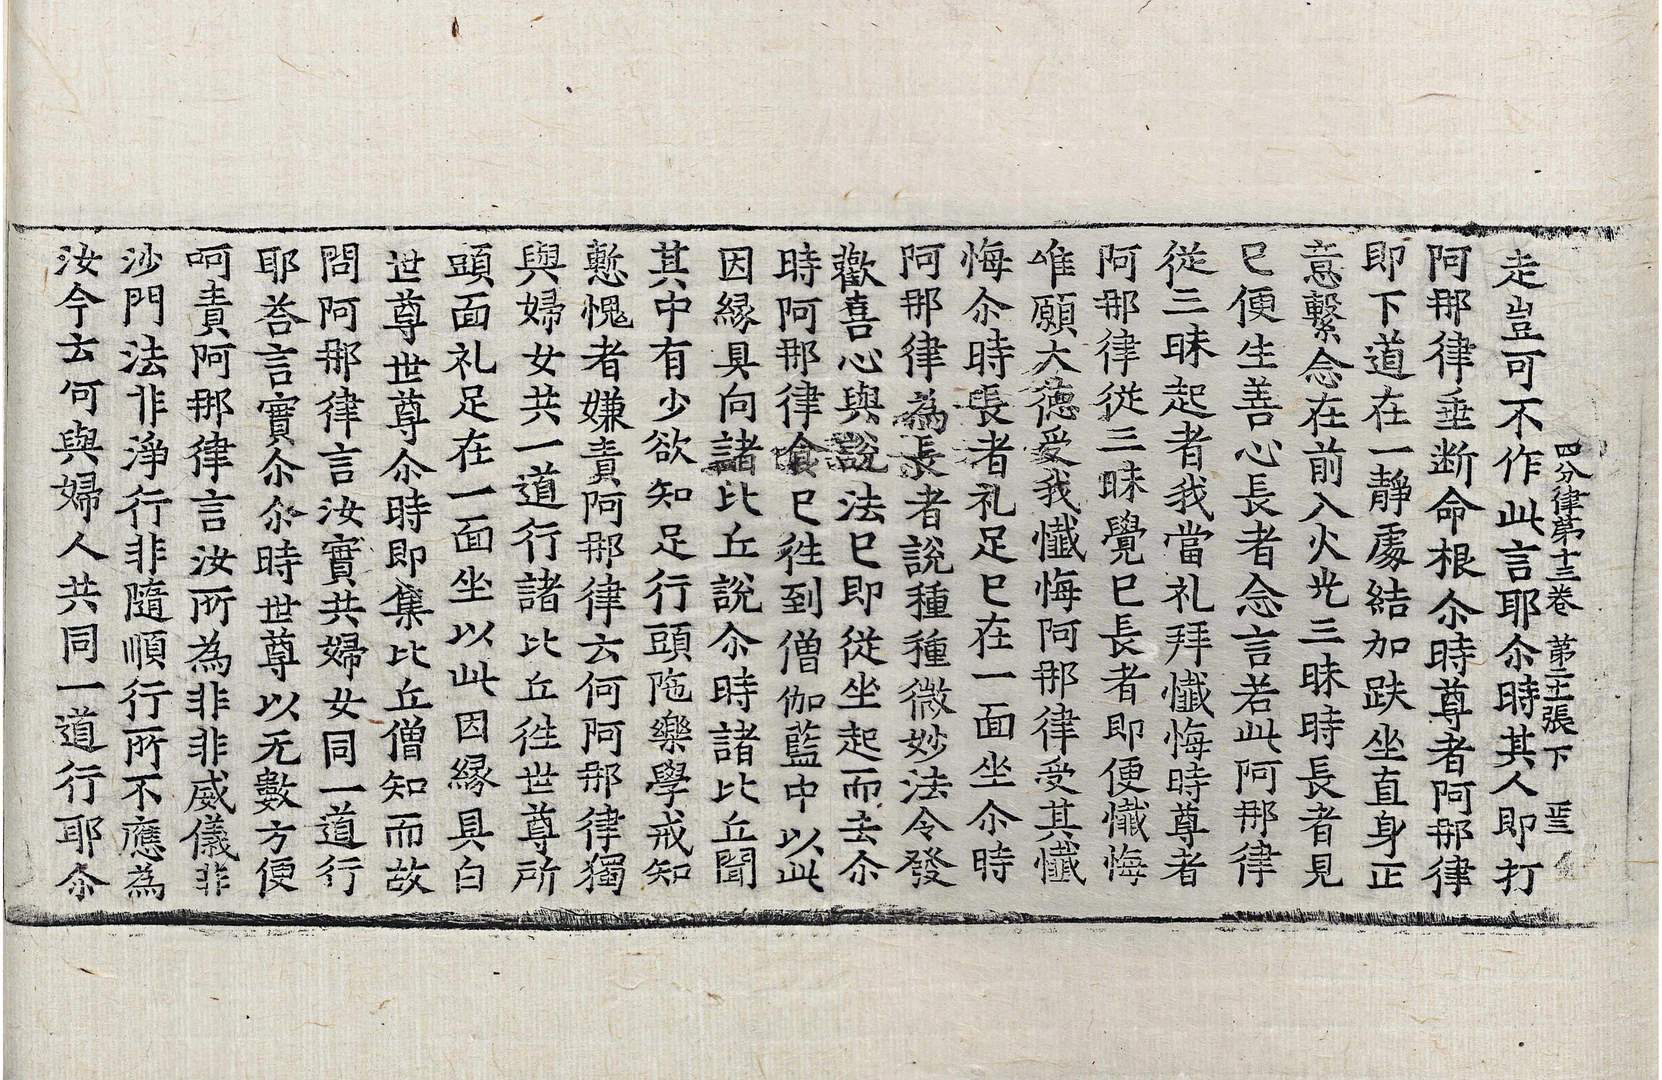 四分律第十三卷 第二十張 下
走豈可不作此言耶尒時其人即打
阿那律垂断命根尒時尊者阿那律
即下道在一靜處結加趺坐直身正
意繫念在前入火光三昧時長者見
已便生善心長者念言若此阿那律
從三昧起者我當礼拜懺悔時尊者
阿那律從三昧覺已長者即便懺悔
唯願大德受我懺悔阿那律受其懺
悔尒時長者礼足已在一面坐尒時
阿那律為長者說種種微妙法令發
歡喜心與說法已即從坐起而去尒
時阿那律食已徃到僧伽藍中以此
因縁具向諸比丘說尒時諸比丘聞
其中有少欲知足行頭陁樂學戒知
慙愧者嫌責阿那律云何阿那律獨
與婦女共一道行諸比丘徃世尊所
頭面礼足在一面坐以此因縁具白
世尊世尊尒時即集比丘僧知而故
問阿那律言汝實共婦女同一道行
耶荅言實尒尒時世尊以无數方便
呵責阿那律言汝所為非非威儀非
沙門法非淨行非隨順行所不應為
汝今云何與婦人共同一道行耶尒